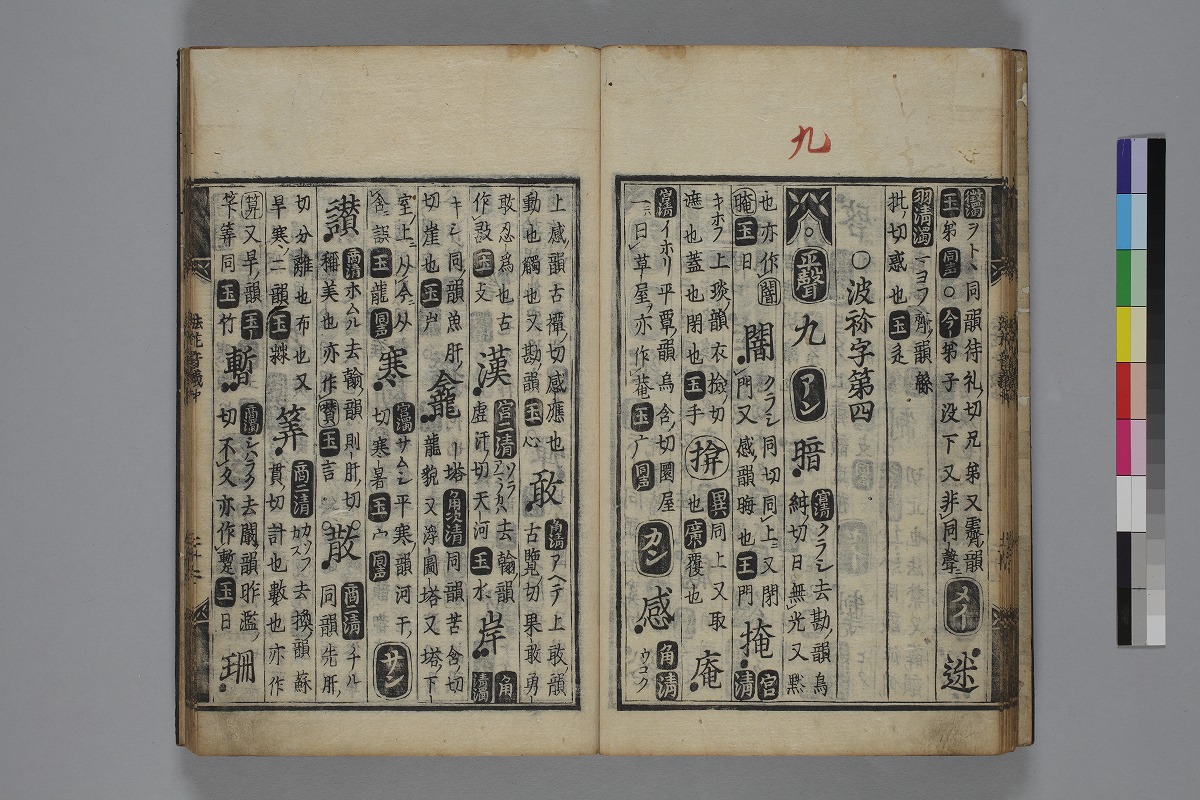 九
ヲトヽ同韻待礼切兄弟又霽韻
玉弟同声〇今弟子没下又非同聲メイ迷
羽清濁ーヨフ齊韻緜
批切惑也玉辵
〇波祢字第四
正聲九アン暗宮清クラシ去勘韻烏紺切日無光又黙
也亦作闇玉日闇クラシ同切同上又閉門又感韻晦也玉門掩宮清
キホフ上琰韻衣檢切遮也蓋也閉也玉手揜異同上又取也廣覆也庵
宮清イホリ平覃韻烏含切圜屋一曰草屋亦作菴玉广同声カン感角清ウコク
上感韻古禫切感應也動也觸也又勘韻玉心敢角清アヘテ上敢韻古覽切果敢勇
敢忍爲也古作玉攴漢宮二清ソラアマノカハ去翰韻虚汗切天河玉水岸角清濁
キシ同韻魚肝切崖也玉屵龕ー塔角次清同韻苦含切龍貌又浮圖塔又塔下
室上从今从含誤玉龍同声寒宮濁サムシ平寒韻河干切寒暑玉宀同声サン
讃商清ホムル去翰韻則肝切稱美也亦作賛玉言散商二清チル同韻先肝
切分離也布也又旱寒二韻玉㪔筭商二清カソフカズ去換韻蘇貫切計也數也亦作
算又旱韻玉竹暫商濁シハラク去闞韻昨濫切不久亦作蹔玉日珊